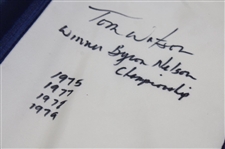 Tom Watson
Winner Byron Nelson
Championship
1975
1977
1978
1979